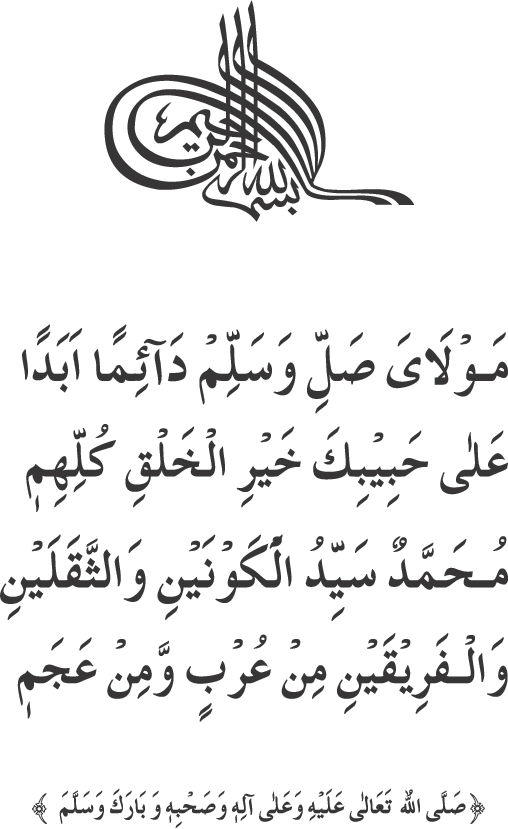 بسم الله الرحمن الرحيم
مَوْلَایَ صَلِّ وَسَلِّمْ دَآئِمًا اَبَدًا
عَلٰی حَبِیْبِكَ خَیْرِ الْخَلْقِ كُلِّهِمٖ
مُحَمَّدٌ سَیِّدُ الْكَوْنَیْنِ وَالثَّقَلَیْنِ
وَالْفَرِیْقَیْنِ مِنْ عُرْبٍ وَّمِنْ عَجَمٖ
﴿ صَلَّی اللهُ تَعَالٰی عَلَیْهِ وَعَلٰی آلِهٖ وَصَحْبِهٖ وَبَارَكَ وَسَلَّمَ ﴾